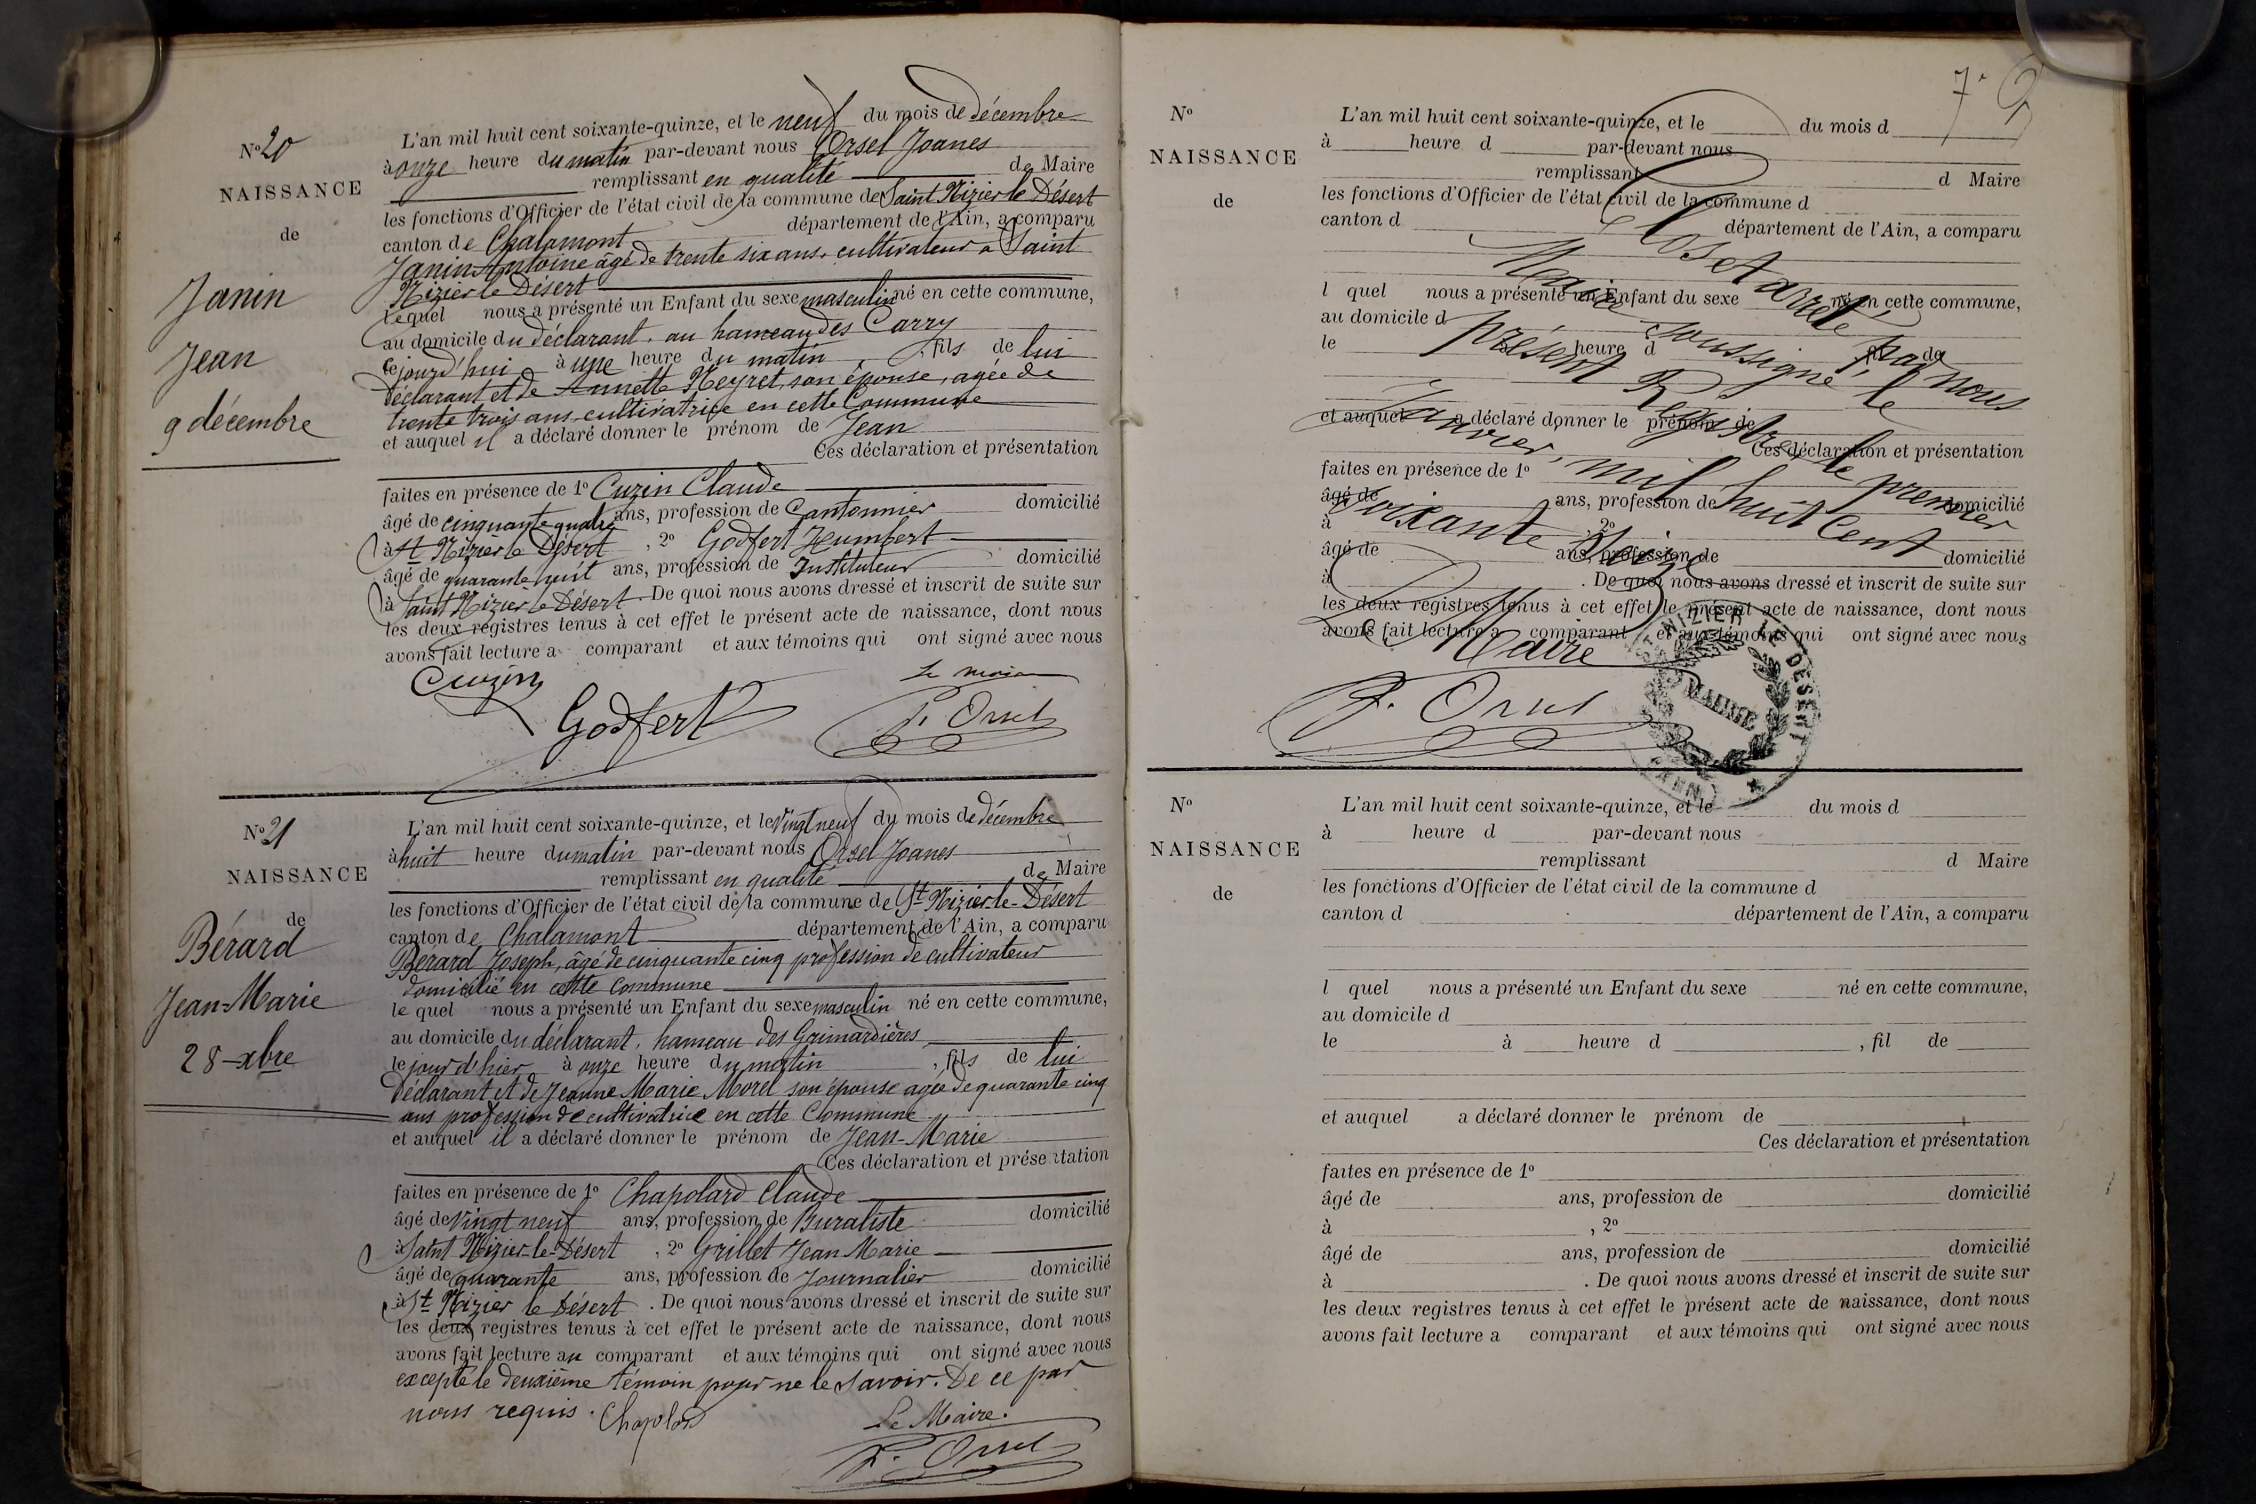 Nº 20
NAISSANCE
de
Janin
Jean
9 décembre
L'an mil huit cent soixante-quinze, et le neuf du mois de décembre
à onze heure du matin par-devant nous Orsel Joanes
remplissant en qualité de Maire
les fonctions d'Officier de l'état civil de la commune de Saint Nizier le Désert
canton de Chalamont département de l'Ain, a comparu
Janin Antoine âgé de trente six ans, cultivateur a Saint
Nizier le Désert
lequel nous a présenté un Enfant du sexe masculin né en cette commune,
au domicile du déclarant, au hameau des Carry
le jourd'hui à une heure du matin, fils de lui
déclarant et de Annette Neyret, son épouse, agée de
trente trois ans cultivatrice en cette Commune
et auquel il a déclaré donner le prénom de Jean
Ces déclaration et présentation
faites en présence de 1º Cuzin Claude
âgé de cinquante quatre ans, profession de Cantonnier domicilié
à St Nizier le Désert, 2º Godfert Humbert
âgé de quarante huit ans, profession de Instituteur domicilié
à Saint Nizier le Désert. De quoi nous avons dressé et inscrit de suite sur
les deux registres tenus à cet effet le présent acte de naissance, dont nous
avons fait lecture a comparant et aux témoins qui ont signé avec nous
Cuzin
Le maire
Godfert
J. Orsel
Nº 21
NAISSANCE
de
Bérard
Jean-Marie
28 xbre
L'an mil huit cent soixante-quinze, et le vingt neuf du mois de décembre
à huit heure du matin par-devant nous Orsel Joanes
remplissant en qualité de Maire
les fonctions d'Officier de l'état civil de la commune de St Nizier-le-Désert
canton de Chalamont département de l'Ain, a comparu
Bérard Joseph, âgé de cinquante cinq profession de cultivateur
domicilié en cette Commune
le quel nous a présenté un Enfant du sexe masculin né en cette commune,
au domicile du déclarant, hameau des Grimardières
le jour d'hier à onze heure du matin, fils de lui
déclarant et de Jeanne Marie Morel son épouse agée de quarante cinq
ans profession de cultivatrice en cette Commune
et auquel il a déclaré donner le prénom de Jean-Marie
Ces déclaration et présentation
faites en présence de 1º Chapolard Claude
âgé de vingt neuf ans, profession de Buraliste domicilié
à Saint Nizier-le-Désert, 2º Grillet Jean Marie
âgé de quarante ans, profession de Journalier domicilié
à St Nizier le Désert. De quoi nous avons dressé et inscrit de suite sur
les deux registres tenus à cet effet le présent acte de naissance, dont nous
avons fait lecture au comparant et aux témoins qui ont signé avec nous
excepté le deuxième témoin pour ne le savoir. De ce par
nous requis. Chapolard
Le Maire.
J. Orsel
Nº
NAISSANCE
de
L'an mil huit cent soixante-quinze, et le du mois d
à heure d par-devant nous
remplissant d Maire
les fonctions d'Officier de l'état civil de la commune d
canton d département de l'Ain, a comparu
l quel nous a présenté un Enfant du sexe né en cette commune,
au domicile d
le à heure d, fil de
et auquel a déclaré donner le prénom de
Ces déclaration et présentation
faites en présence de 1º
âgé de ans, profession de domicilié
à , 2º
âgé de ans, profession de domicilié
à . De quoi nous avons dressé et inscrit de suite sur
les deux registres tenus à cet effet le présent acte de naissance, dont nous
avons fait lecture a comparant et aux témoins qui ont signé avec nous
Clos et arrêté par nous
Maire soussigné, le
présent Registre le premier
Janvier, mil huit Cent
soixante Seize
Le Maire
J. Orsel
ST NIZIER LE DESERT
MAIRIE
(AIN)
Nº
NAISSANCE
de
L'an mil huit cent soixante-quinze, et le du mois d
à heure d par-devant nous
remplissant d Maire
les fonctions d'Officier de l'état civil de la commune d
canton d département de l'Ain, a comparu
l quel nous a présenté un Enfant du sexe né en cette commune,
au domicile d
le à heure d , fil de
et auquel a déclaré donner le prénom de
Ces déclaration et présentation
faites en présence de 1º
âgé de ans, profession de domicilié
à , 2º
âgé de ans, profession de domicilié
à . De quoi nous avons dressé et inscrit de suite sur
les deux registres tenus à cet effet le présent acte de naissance, dont nous
avons fait lecture a comparant et aux témoins qui ont signé avec nous